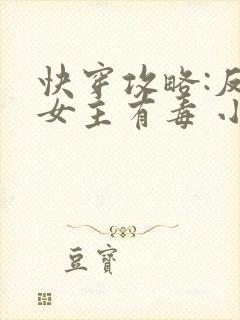 快穿攻略:反
女主有毒 小
豆寶